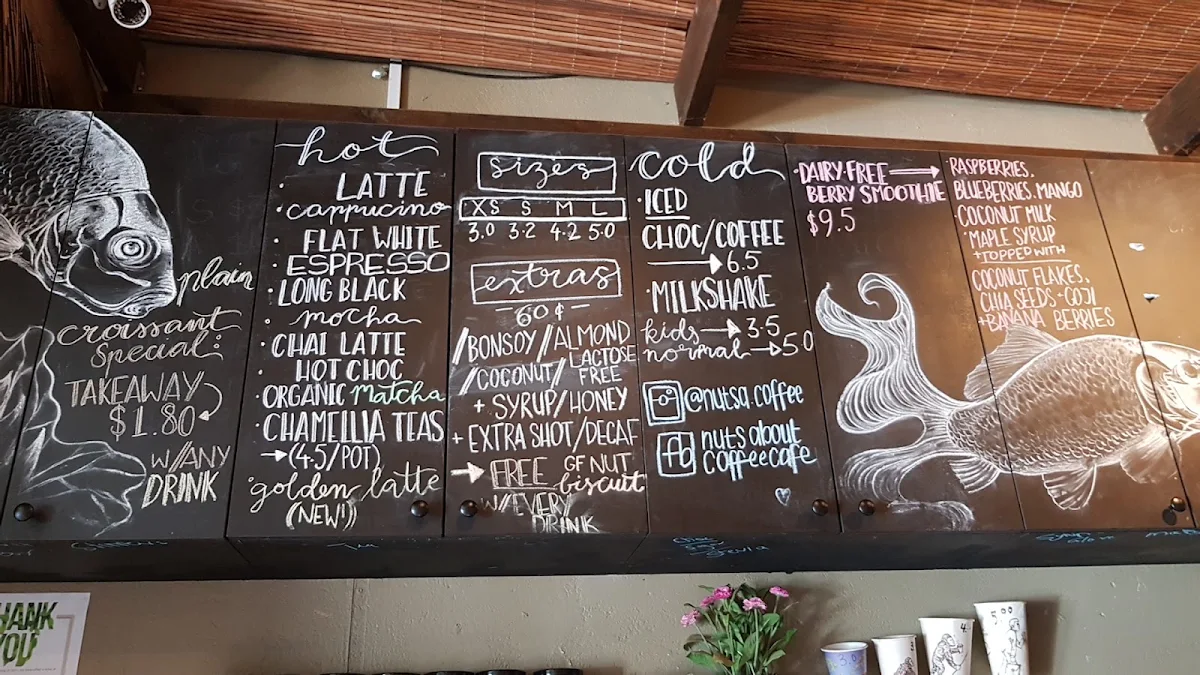 plain
croissant
special:
TAKEAWAY
$1.80
W/ANY
DRINK
hot
· LATTE
· cappucino
· FLAT WHITE
· ESPRESSO
· LONG BLACK
· mocha
· CHAI LATTE
· HOT CHOC
ORGANIC matcha
· CHAMELLIA TEAS
→ (4.5/POT)
golden latte
(NEW!)
sizes
XS S M L
3.0 3.2 4.2 5.0
extras
60¢
/BONSOY/ALMOND
/COCONUT/LACTOSE FREE
+ SYRUP/HONEY
+ EXTRA SHOT/DECAF
→ FREE GF NUT biscuit
W/EVERY
DRINK
cold
· ICED
CHOC/COFFEE
→ 6.5
· MILKSHAKE
kids → 3.5
normal → 5.0
@nutsa.coffee
fb nuts about
coffeecafe
· DAIRY-FREE →
BERRY SMOOTHIE
$9.5
RASPBERRIES,
BLUEBERRIES, MANGO
· COCONUT MILK
· MAPLE SYRUP
+ TOPPED WITH
COCONUT FLAKES,
CHIA SEEDS + GOJI
+ BANANA BERRIES
THANK
YOU
4.
5.00